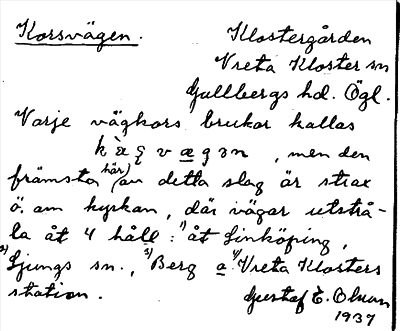 Korsvägen. Klostergården
Vreta Kloster sn
Gullbergs hd. Ögl.
Varje vägkors brukar kallas
, men den
främsta (här) av detta slag är strax
ö. om kyrkan, där vägar utstrå-
la åt 4 håll: 1) åt Linköping,
2) Ljungs sn., 3) Berg a 4) Vreta Klosters
station. Gustaf E. Olsson
1937